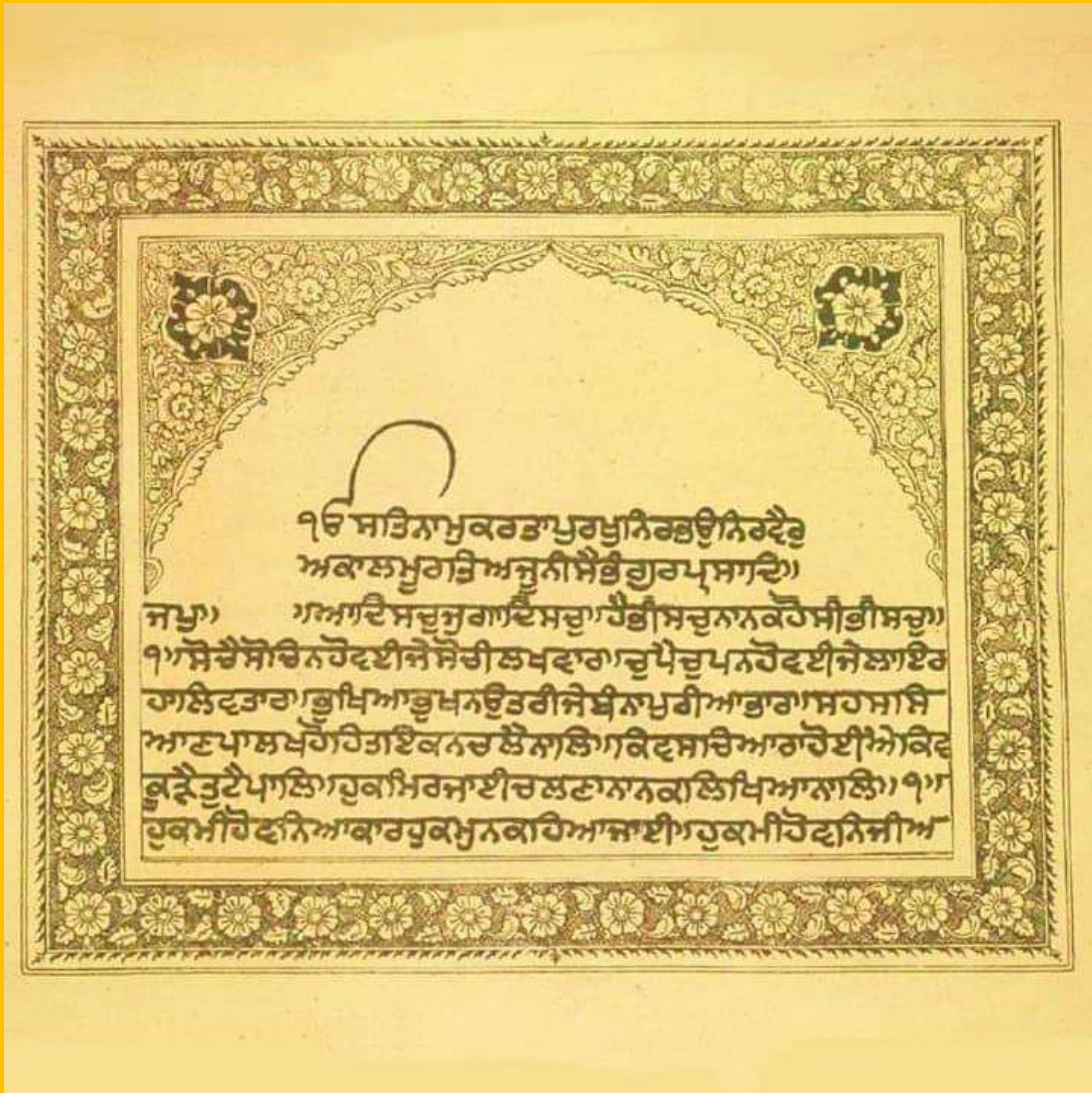 ੴਸਤਿਨਾਮੁਕਰਤਾਪੁਰਖੁਨਿਰਭਉਨਿਰਵੈਰੁ
ਅਕਾਲਮੂਰਤਿਅਜੂਨੀਸੈਭੰਗੁਰਪ੍ਰਸਾਦਿ॥
ਜਪੁ॥ ॥ਆਦਿਸਚੁਜੁਗਾਦਿਸਚੁ॥ਹੈਭੀਸਚੁਨਾਨਕਹੋਸੀਭੀਸਚੁ॥
੧॥ਸੋਚੈਸੋਚਿਨਹੋਵਈਜੇਸੋਚੀਲਖਵਾਰ॥ਚੁਪੈਚੁਪਨਹੋਵਈਜੇਲਾਇਰ
ਹਾਲਿਵਤਾਰ॥ਭੁਖਿਆਭੁਖਨਉਤਰੀਜੇਬੰਨਾਪੁਰੀਆਭਾਰ॥ਸਹਸਸਿ
ਆਣਪਾਲਖਹੋਹਿਤਇਕਨਚਲੈਨਾਲਿ॥ਕਿਵਸਚਿਆਰਾਹੋਈਐਕਿਵ
ਕੂੜੈਤੁਟੈਪਾਲਿ॥ਹੁਕਮਿਰਜਾਈਚਲਣਾਨਾਨਕਲਿਖਿਆਨਾਲਿ॥੧॥
ਹੁਕਮੀਹੋਵਨਿਆਕਾਰਹੁਕਮੁਨਕਹਿਆਜਾਈ॥ਹੁਕਮੀਹੋਵਨਿਜੀਅ